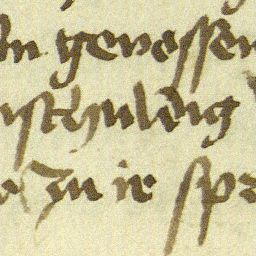 In genessen
nschuldig
zu ir spr